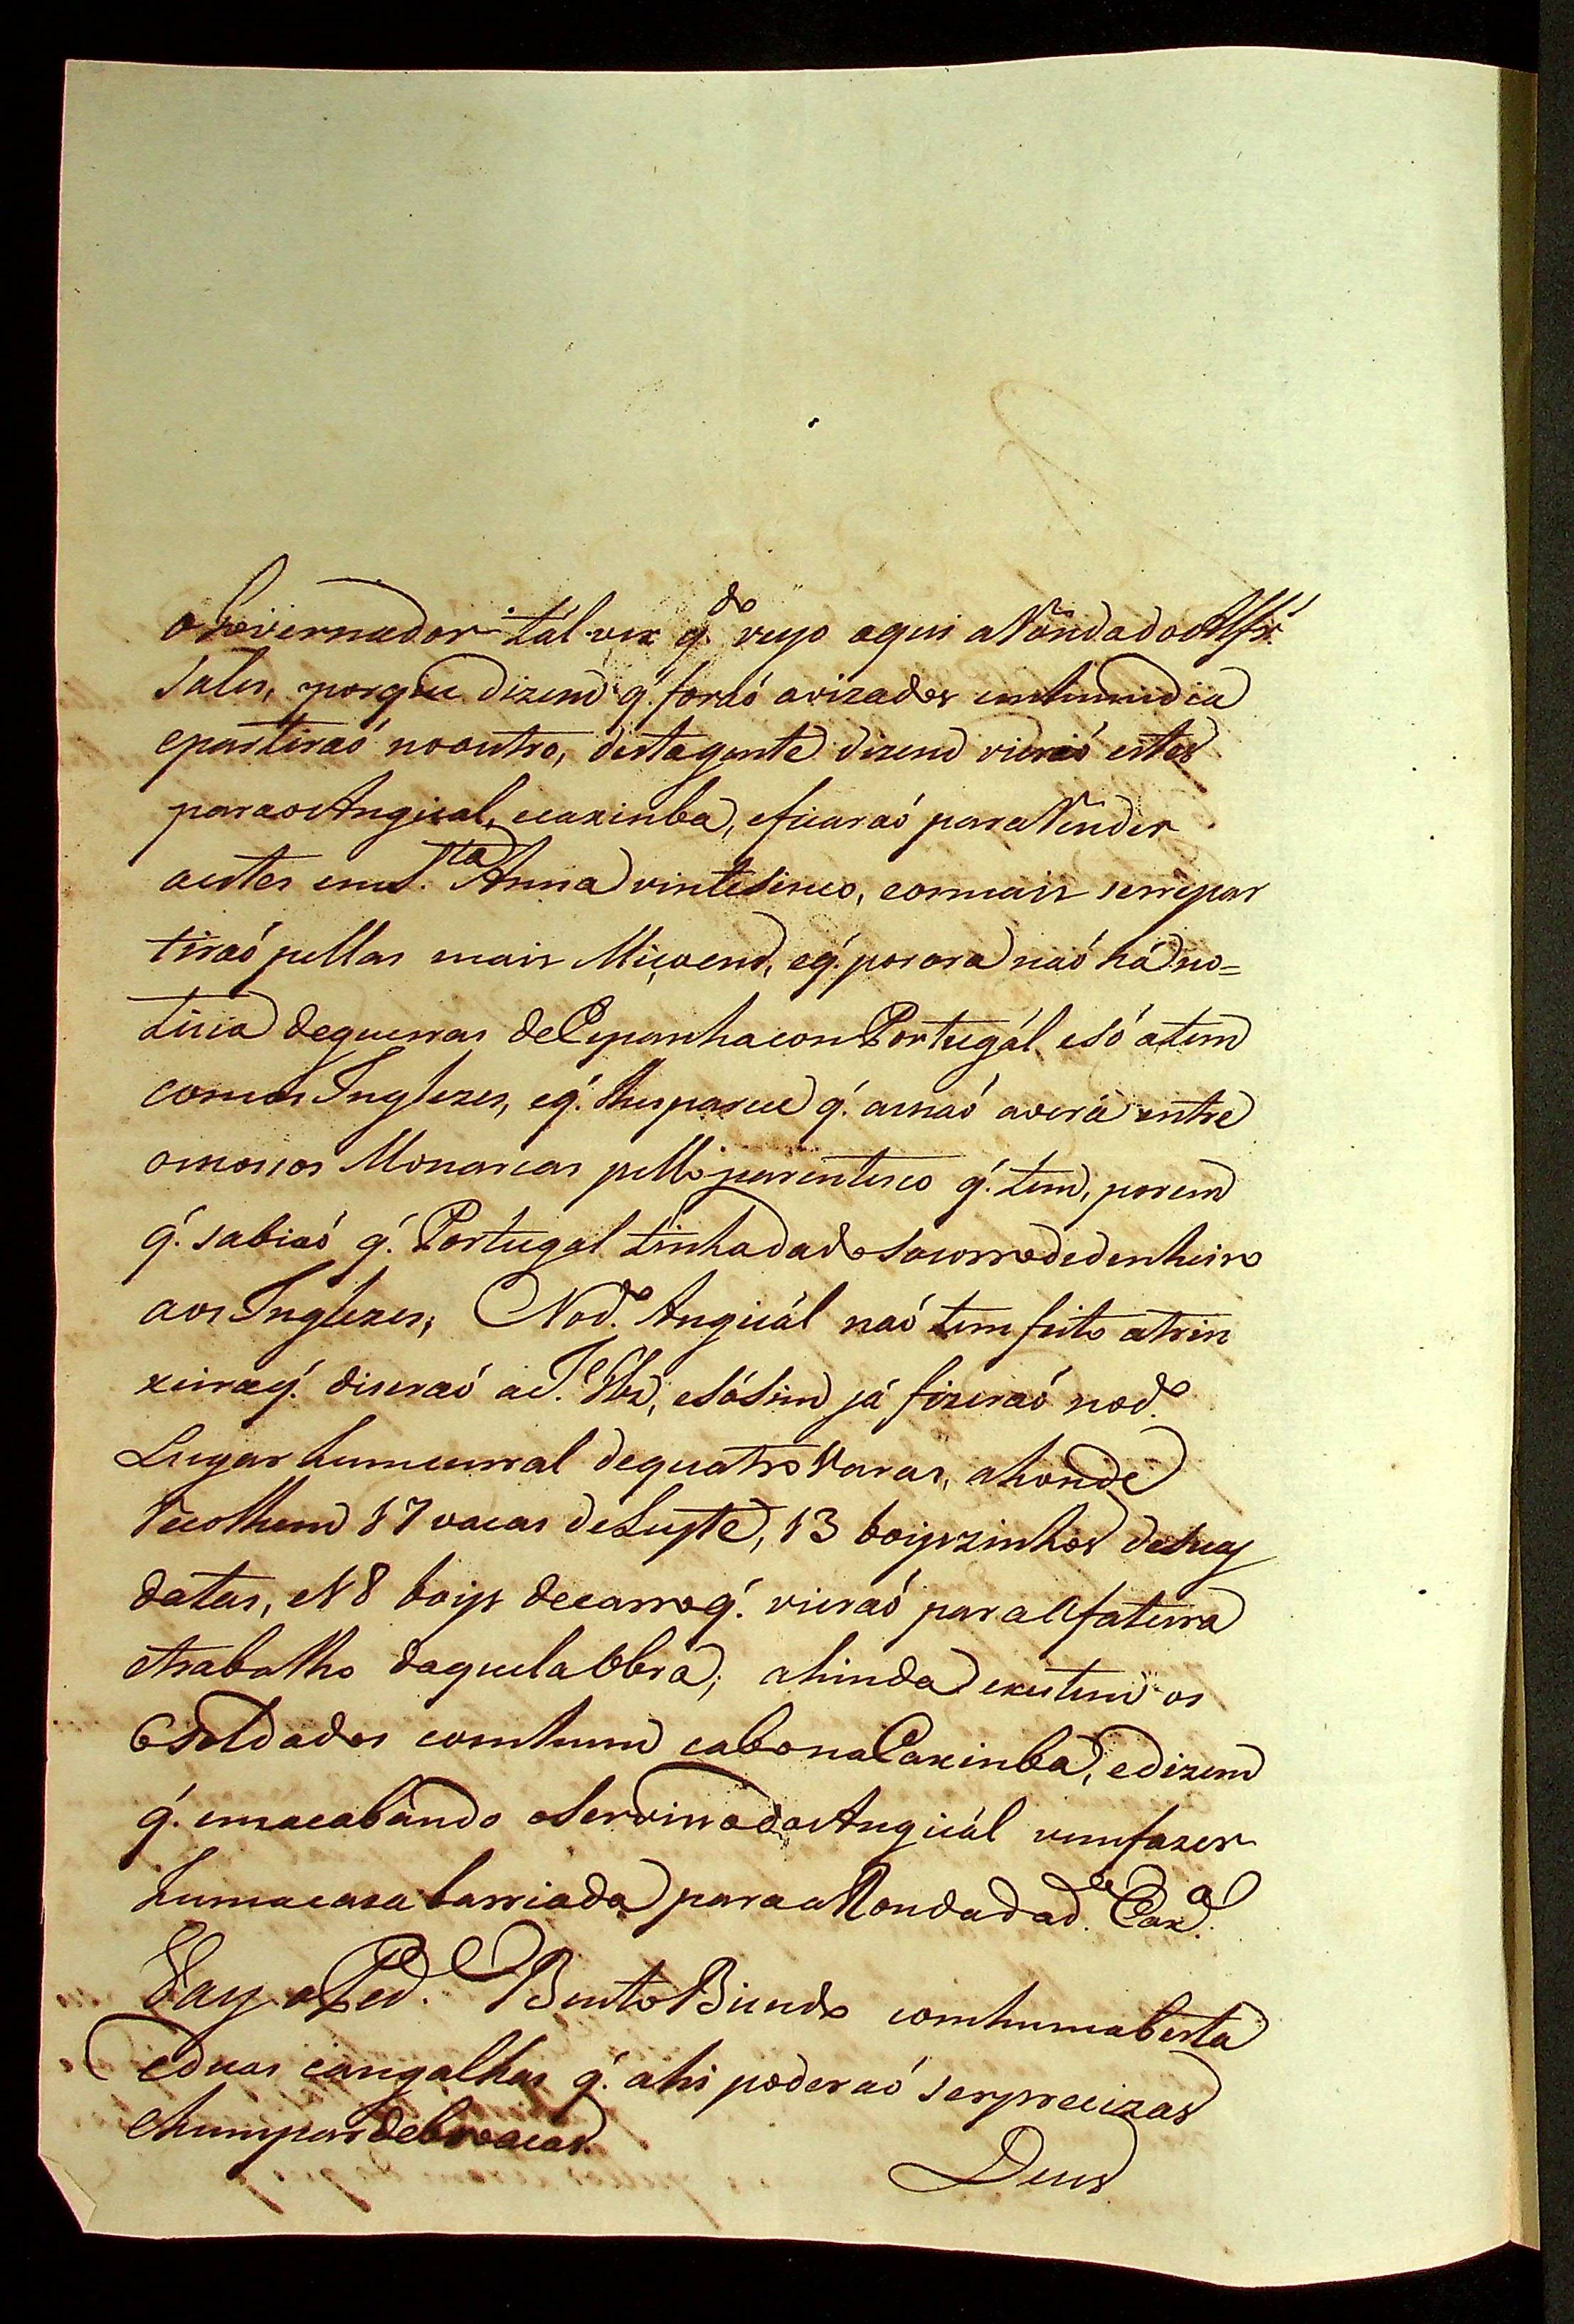 o Governador tál vex q.do veyo aqui a Rondado Alfr.
Sales, porque dizem q.' foraó avizados em hum dia
epartiraó no outro, destagente dizem vieraó estes
parao Angical, ecaxinba, eficaraó para Render
aestes em S.ta Anna vintesinco, eomais serrepar
tiraó pellas mais Miçoens, eq.' por ora naó há no=
ticia deguerras deEspanhacon Portugál, esó atem
comos Inglezes, eq.' lhesparece q.' anaó averá entre
onossos Monarcas pello parentesco q.' tem, porem
q.' sabiaó q.' Portugal tinhadado socorrodedenheiro
aos Inglezes; No d.o Angicál naó tem feito atrin
xeiraq.' diseraó a V. S.a, esósim já fizeraó no d.o
Lugar humcurral dequatro Varas, ahonde
Recolhem 17 vacas deLeyte, 13 boiyszinhos desuas
datas, e 18 boiys decarroq.' vieraó para Afatura
etrabalho daquela Obra; ahinda existem os
6 Soldados comhum cabona Caxinba, edizem
q.' emacabando oServissodo Angicál vemfazer
humacasa barriada para a Rondadad.a Cax.a
Vay o Ped. Bento Bundo comhumabesta
eduas cangalhas q.' ahi poderaó serprecizas
ehumpardebroacas.
Deus